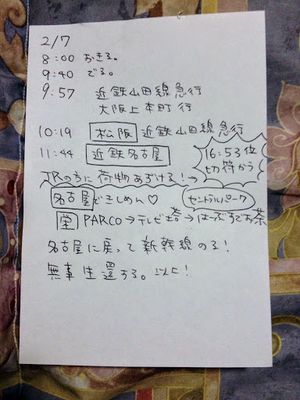 2/7
8:00 おきる。
9:40 でる。
9:57 近鉄山田線急行
大阪上本町行
10:19 松阪 近鉄山田線急行
11:44 近鉄名古屋
16:53位
切符かう
JRの方に荷物あずける!→
名古屋できしめん♡
セントラルパーク
栄 PARCO→テレビ塔→はーぶすでお茶
名古屋に戻って新幹線のる!
無事生還する。以上!